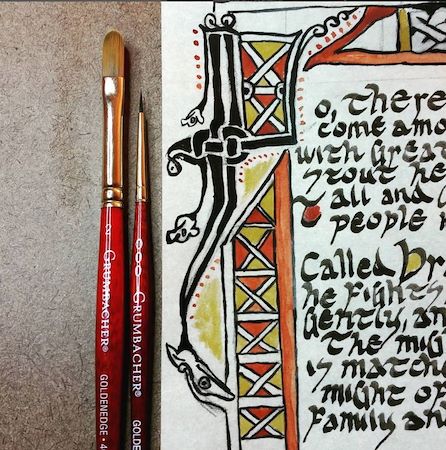 2 GRUMBACHER® GOLDENEDGE • 4
000 GRUMBACHER® GOLDEN
o, There
come amo
with Great
stout he
all and
people
Called Dr
he Fights
Gently, an
The mig
is matche
might of
Family and